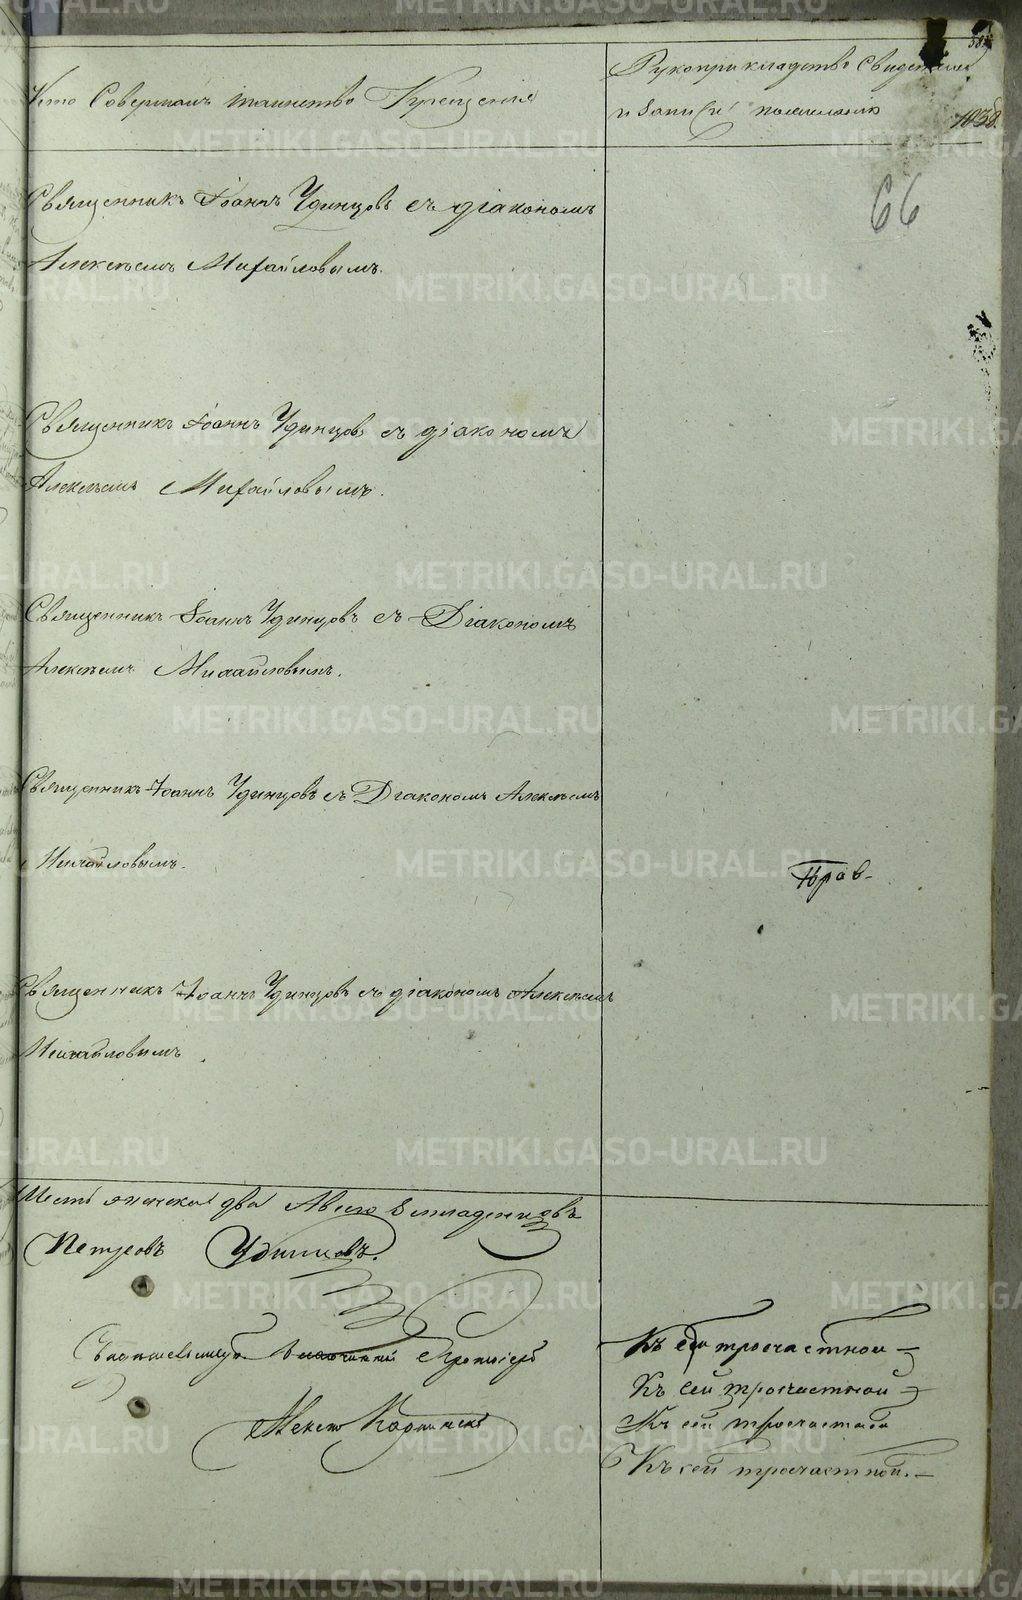 Кто Совершалъ таинство Крещенія
Рукоприкладство Свидетелей
и записи по желанію
1036.
66
Священникъ Іоаннъ Удинцовъ съ діакономъ
Алексѣемъ Михайловымъ.
Священникъ Іоаннъ Удинцовъ съ діакономъ
Алексѣемъ Михайловымъ.
Священникъ Іоаннъ Удинцовъ съ Діакономъ
Алексѣемъ Михайловымъ.
Священникъ Іоаннъ Удинцовъ съ Діакономъ Алексѣемъ
Михайловымъ.
Священникъ Іоаннъ Удинцовъ съ діакономъ Алексѣемъ
Михайловымъ.
женска два Младенцовъ
Петровъ Удинцовъ.
Къ сей трочастной
Къ сей трочастной
Къ сей трочастной
Къ сей трочастной.
METRIKI.GASO-URAL.RU